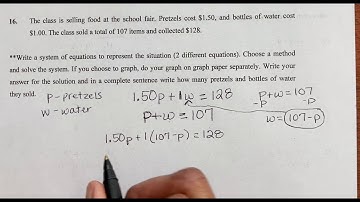 16. The class is selling food at the school fair. Pretzels cost $1.50, and bottles of water cost
$1.00. The class sold a total of 107 items and collected $128.
**Write a system of equations to represent the situation (2 different equations). Choose a method
and solve the system. If you choose to graph, do your graph on graph paper separately. Write your
answer for the solution and in a complete sentence write how many pretzels and bottles of water
they sold.
p - pretzels
w - water
1.50p + 1w = 128
p + w = 107
p + w = 107
-p -p
w = 107 - p
1.50p + 1(107 - p) = 128